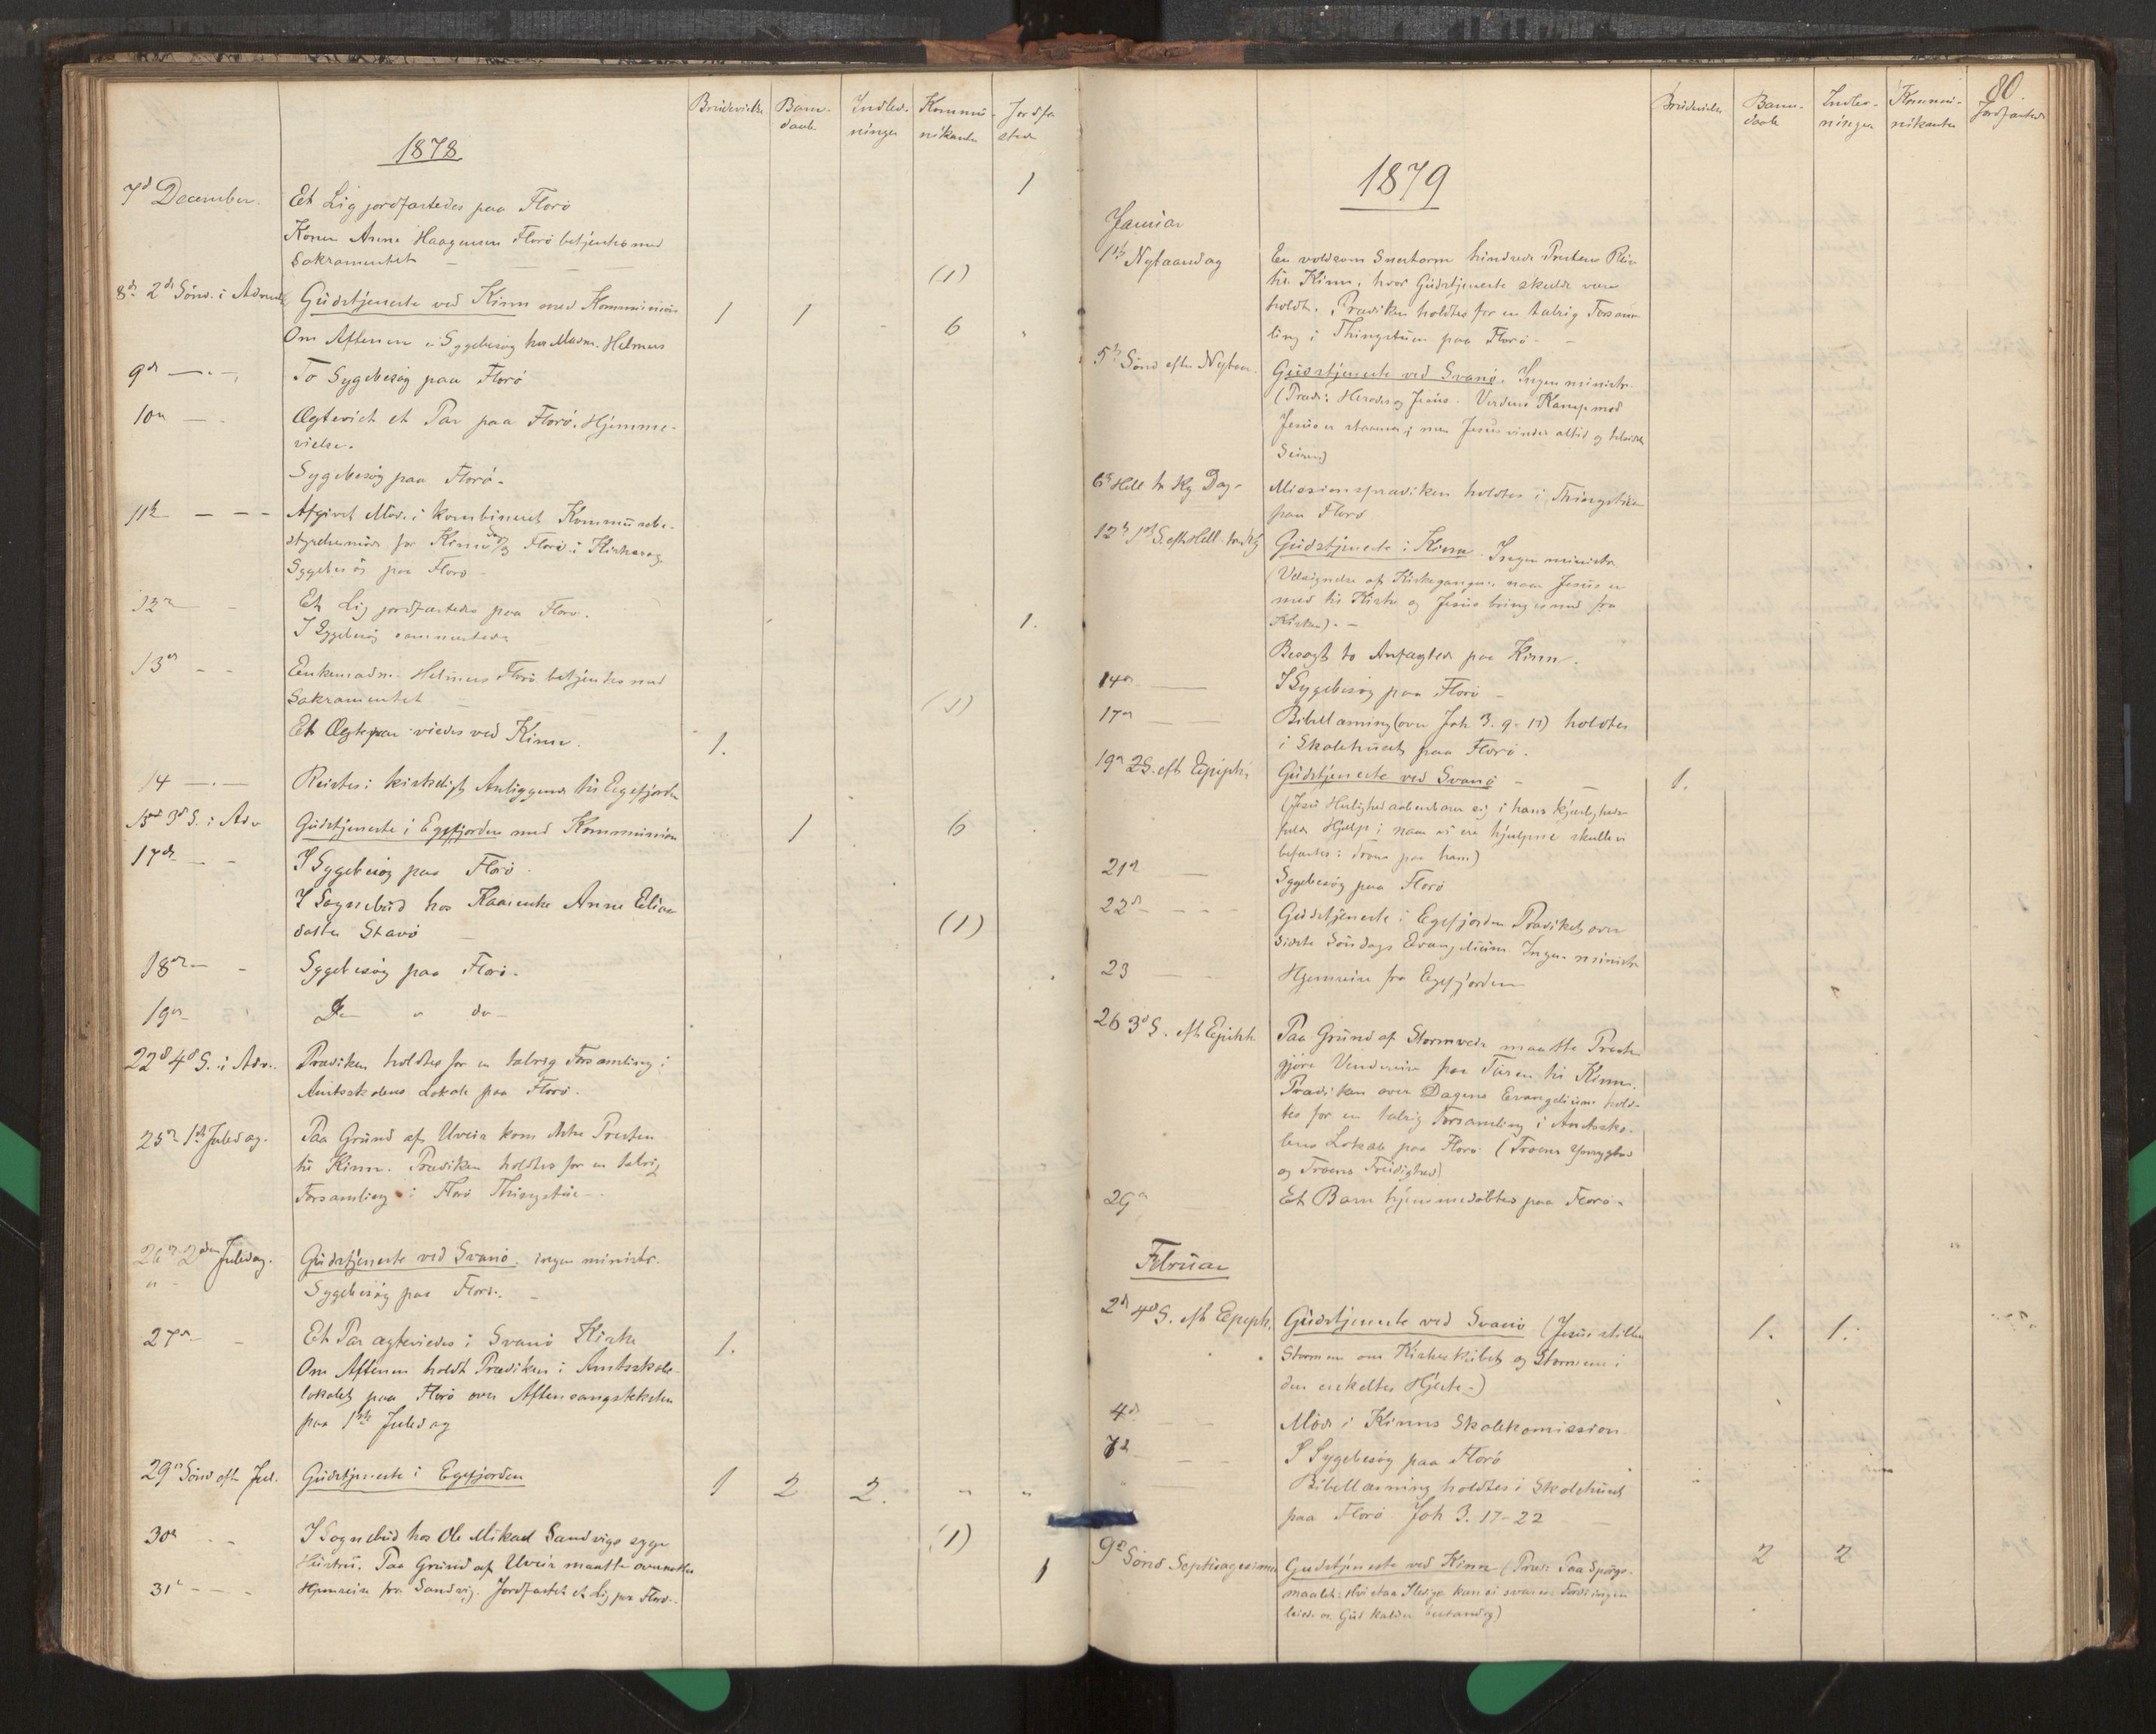 Brudevielse Barne- Indled- Kommu- Jordfæ-
daab ninger nikanter stede
1878
7d December. Et Lig jordfæstedes paa Florö 1
Konen Anne Haagensen Florö betjentes med
Sakramentet — (1)
8de 2d Sönd. i Advent Gudstjeneste ved Kinn med Kommunion 1 1 - 6 "
Om Aftenen i Sygebesög hos Madm. Helmers
9de —.— To Sygebesög paa Florö
10de — Ægteviet et Par paa Florö. Hjemme-
vielse.
Sygebesög paa Florö.
11te — — — Afgivet Möde i kombineret Kommunebe-
styrelsesmöde for Kinn og Florö i Kirkesag.
Sygebesög paa Florö —
12te — Et Lig jordfæstedes paa Florö. 1.
I Sygebesög sammesteds
13de — — Enkemadm. Helmers Florö betjentes med
Sakramentet — (1)
Et Ægtepar viedes ved Kinn. 1.
14 —.— Reiste i kirkeligt Anliggende til Egefjorden
15de 3d S. i Adv Gudstjeneste i Egefjorden med Kommunion 1 6
17de — — I Sygebesög paa Florö.
I Sognebud hos Kaarenke Anne Elias-
datter Stavö — (1)
18de — - Sygebesög paa Florö.
19de Do " do —
22d 4d S. i Adv. Prædiken holdtes for en talrig Forsamling i
Amtsskolens Lokale paa Florö.
25de 1ste Juledag. Paa Grund af Uveir kom ikke Presten
til Kinn. Prædiken holdtes for en talrig
Forsamling i Florö Thingstue —.
26de 2den Juledag. Gudstjeneste ved Svanö. ingen ministr.
" - Sygebesög paa Florö. —
27de — Et Par ægteviedes i Svanö Kirke 1.
Om Aftenen holdt Prædiken i Amtsskole-
lokalet paa Florö over Aftensangsteksten
paa 1ste Juledag
29de Sönd eft Jul. Gudstjeneste i Egefjorden 1 2 2. " "
30de - - I Sognebud hos Ole Mikael Sandvigs syge (1)
Hustru. Paa Grund af Uveir maatte overnattes
31te — — Hjemreise fra Sandvig. Jordfæstet et Lig paa Florö. 1
80.
Brudevielse Barne- Indled- Kommu- Jordfæstede
daab ninger nikanter
1879
Januar
1ste Nytaarsdag En voldsom Snestorm hindrede Prestens Reise
til Kinn, hvor Gudstjeneste skulde være
holdt. Prædiken holdtes for en talrig Forsam-
ling i Thingstuen paa Florö — —
5te Sönd efter Nytaar Gudstjeneste ved Svanö. Ingen ministr.
(Præd: Herodes og Jesus. Verdens Kamp mod
Jesus er; men Jesus vinder altid og tilsidst
Seiren)
6te Hell tr Kg Dag. Missionsprædiken holdtes i Thingstuen
paa Florö
12te 1ste S. eft Hell. tr. Kg Gudstjeneste i Kinn. Ingen ministr.
(Velsignelse af Kirkegangen, naar Jesus er
med til Kirke og Jesus bringes med fra
Kirken). —
Besögt to Anfægtede paa Kinn.
14de — I Sygebesög paa Florö —
17de — Bibellæsning (over Joh 3. 9-17) holdtes
i Skolehuset paa Florö.
19de 2 S. eft Epiph. Gudstjeneste ved Svanö — — 1.
(Jesu Herlighed aabenbarer sig i hans kjærligheds-
fulde Hjælp; naar vi ere hjulpne skulle vi
befæstes i Troen paa ham)
21de — Sygebesög paa Florö
22de — — Gudstjeneste i Egefjorden Prædiket over
sidste Söndags Evangelium Ingen ministr
23 — Hjemreise fra Egefjorden
26 3d S. eft Epiph Paa Grund af Stormveir maatte Presten
gjöre Vendereise paa Turen til Kinn.
Prædiken over Dagens Evangelium hold-
tes for en talrig Forsamling i Amtssko-
lens Lokale paa Florö (Troens Ydmyghed
og Troens Freidighed)
29de — Et Barn hjemmedöbtes paa Florö.
Februar
2d 4d S. eft Epiph. Gudstjeneste ved Svanö (Jesus stiller 1. 1.
Stormen om Kirkeskibet og Stormene i
den enkeltes Hjerte.)
4de — — Möde i Kinns Skolekomission
7de — — I Sygebesög paa Florö
" — Bibellæsning holdtes i Skolehuset
paa Florö Joh 3. 17-22 —
9de Sönd Septuagesima Gudstjeneste ved Kinn (Præd: Paa Spörgs- 2 2
maalet: Hvi staa I ledige kan ei svares: Fordi ingen
leiede os. Gud kalder bestandig)